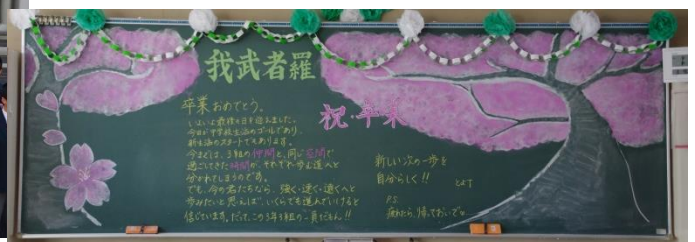 我武者羅
祝・卒業
卒業おめでとう。
いよいよ最後の日を迎えました。
今日が中学校生活のゴールであり、
新生活のスタートでもあります。
今までは、3組の仲間と、同じ空間で
過ごしてきた時間が、それぞれ歩む道へと
分かれてしまうのです。
でも、今の君たちなら、強く・速く・遠くへと
歩みたいと思えば、いくらでも進んでいけると
信じています。だって、この3年3組の一員だもん!!
新しい次の一歩を
自分らしく!!
P.S.
疲れたら、帰っておいでな